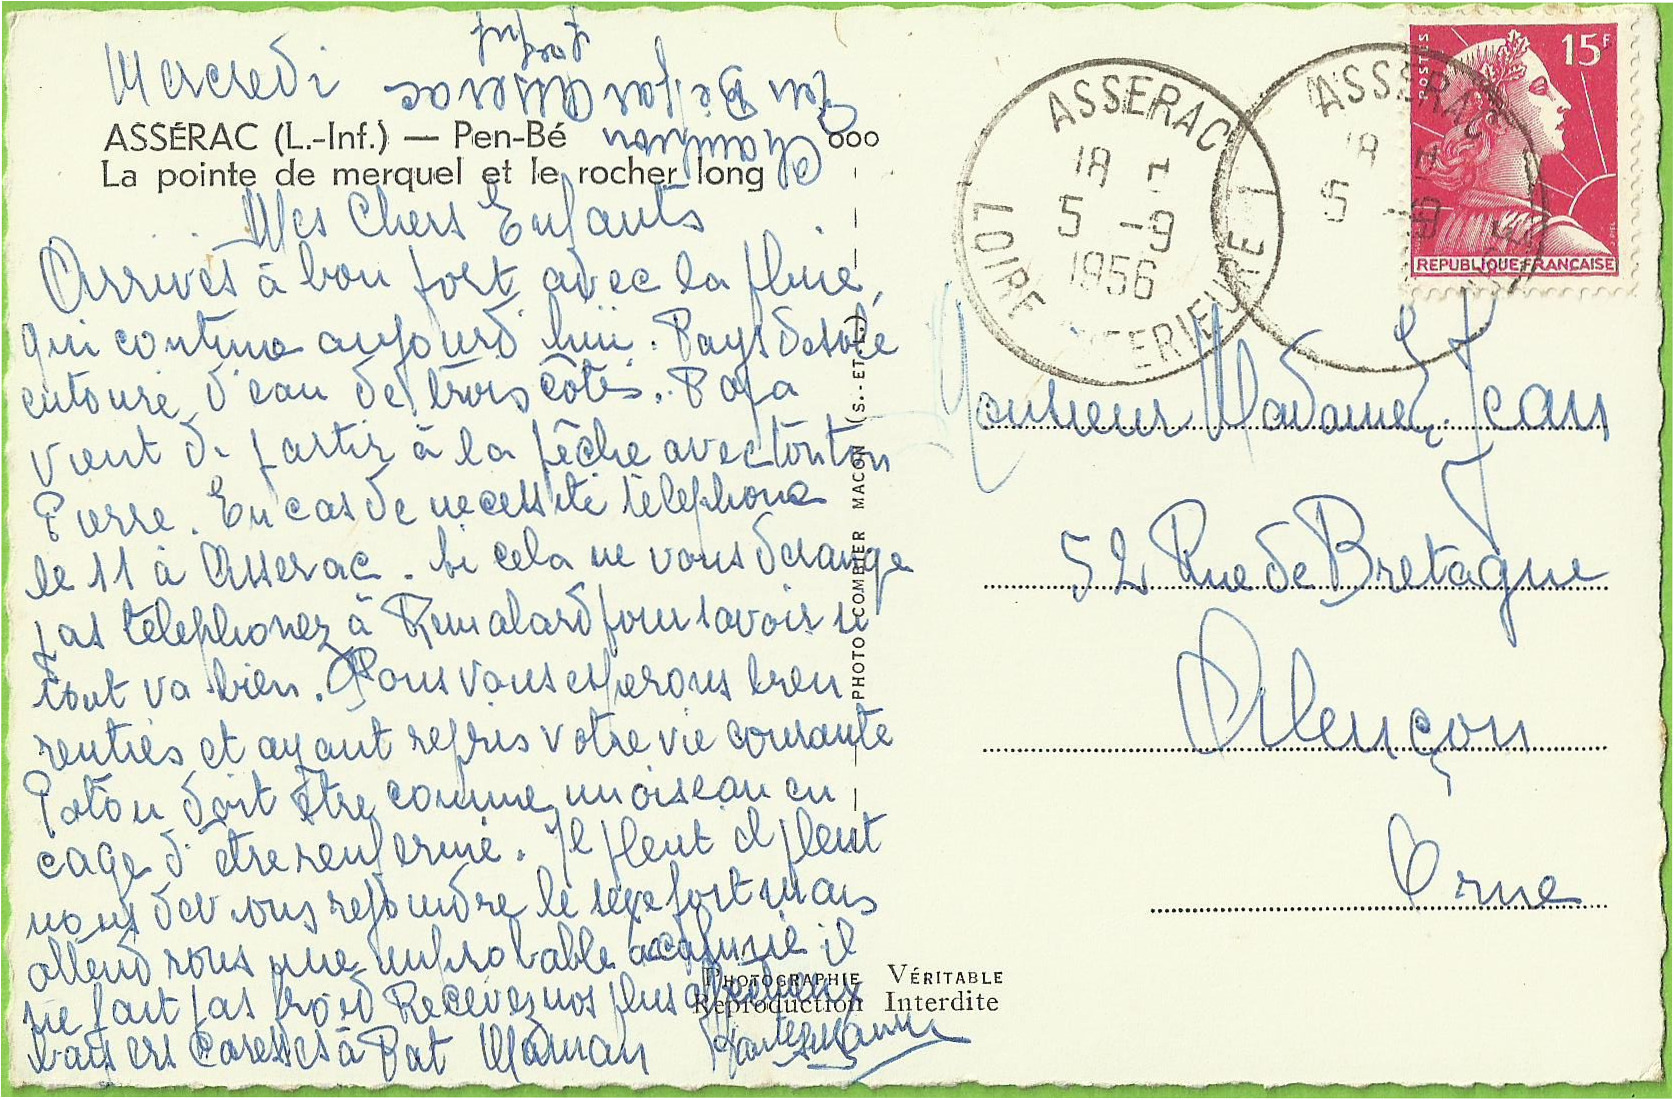 Mercredi
Chaumron
Pen Bé par Asserac
ASSÉRAC (L.-Inf.) — Pen-Bé
ooo
La pointe de merquel et le rocher long
Mes Chers Enfants
Arrivés à bon port avec la pluie,
qui continue aujourd'hui. Pays desolé
entouré d'eau de trois côtés. Papa
vient de partir à la pêche avec tonton
Pierre. En cas de necessité telephone
le 11 à Asserac. Si cela ne vous derange
pas telephonez à Remalard pour savoir si
tout va bien. Nous vous esperons bien
rentrés et ayant repris votre vie courante
Patou doit être comme un oiseau en
cage d'être renfermé. Il pleut il pleut
nous devons rependre le sexe fort mais
attendrons une improbable accalmie il
ne fait pas froid Recevez nos plus affectueux
baisers Caresses à Pat Maman
PHOTO COMBIER MACON (S.-ET-L.)
PHOTOGRAPHIE VÉRITABLE
Reproduction Interdite
ASSERAC
18 H
5 -9
1956
LOIRE INFERIEURE
ASSERAC
18 H
5 -9
POSTES
15F
REPUBLIQUE FRANÇAISE
Monsieur Madame Jean
52 Rue de Bretagne
Alençon
Orne